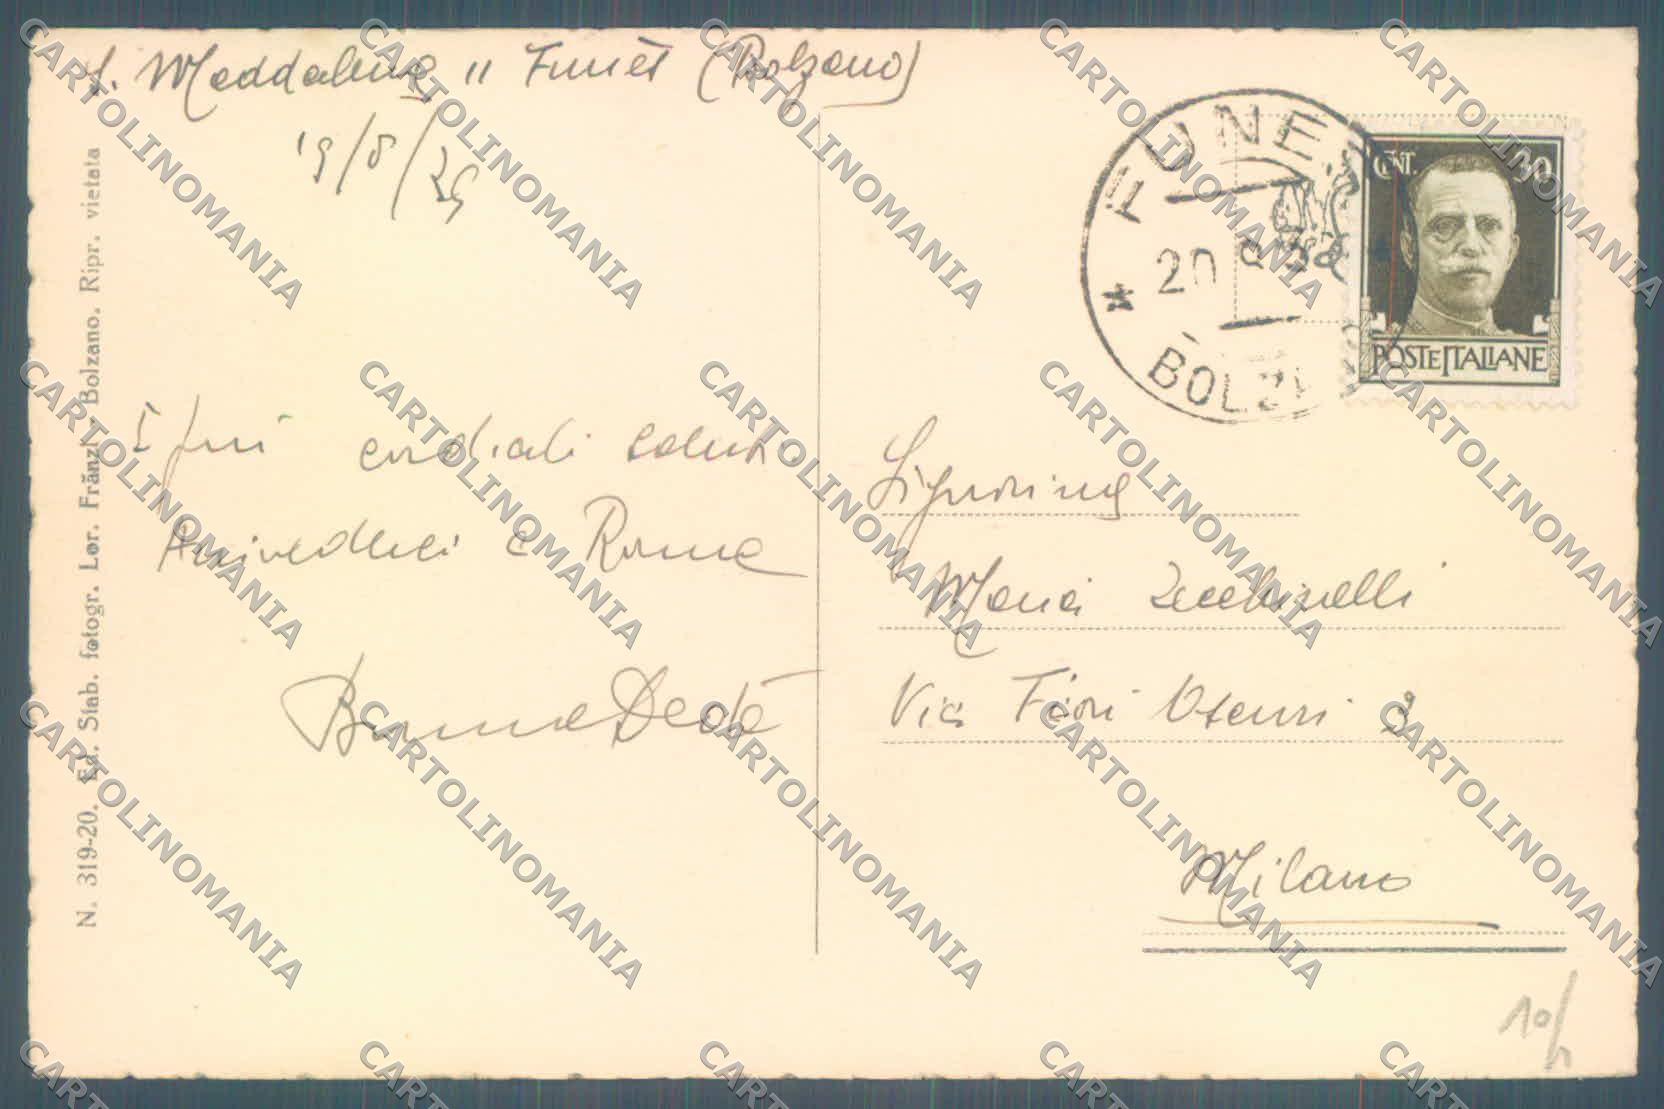 S. Maddalena Funes (Bolzano)
19/8/
I più cordiali saluti
Arrivederci a Roma
FUNES
20
BOLZ
CENT.
POSTE ITALIANE
Signorina
Maria Zecchinelli
Via Fiori Oscuri 3
Milano
10/
N. 319-20. Ed. Stab. fotogr. Lor. Fränzl - Bolzano. Ripr. vietata
CARTOLINOMANIA